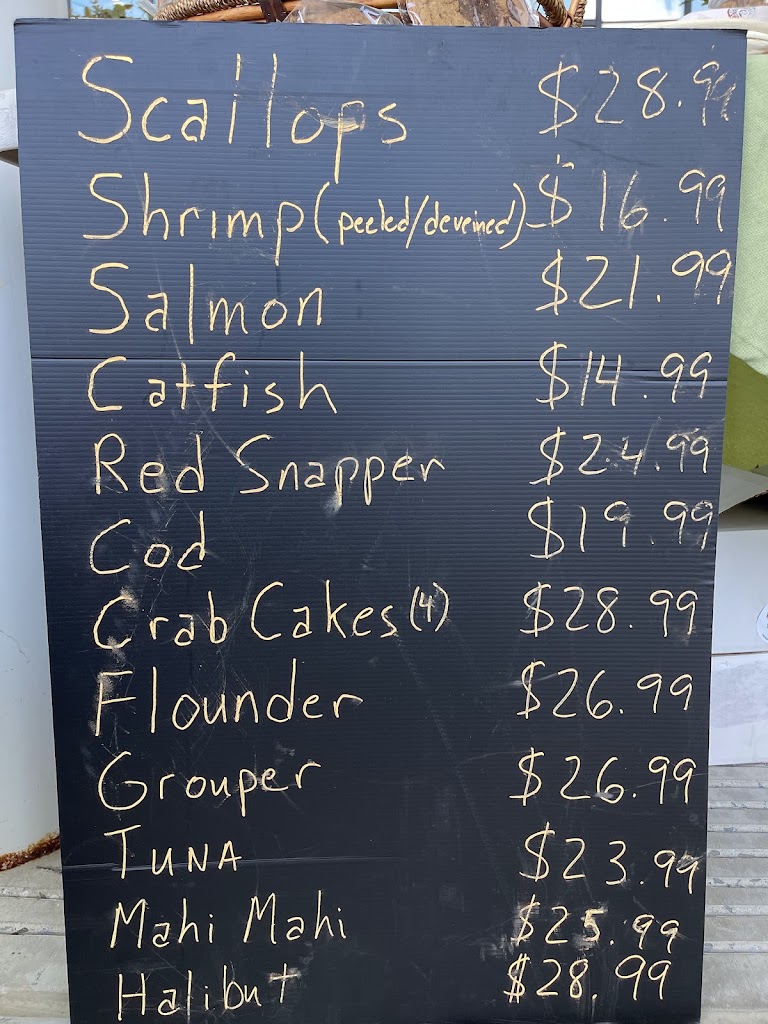 Scallops $28.99
Shrimp (peeled/deveined) $16.99
Salmon $21.99
Catfish $14.99
Red Snapper $24.99
Cod $19.99
Crab Cakes (4) $28.99
Flounder $26.99
Grouper $26.99
TUNA $23.99
Mahi Mahi $25.99
Halibut $28.99